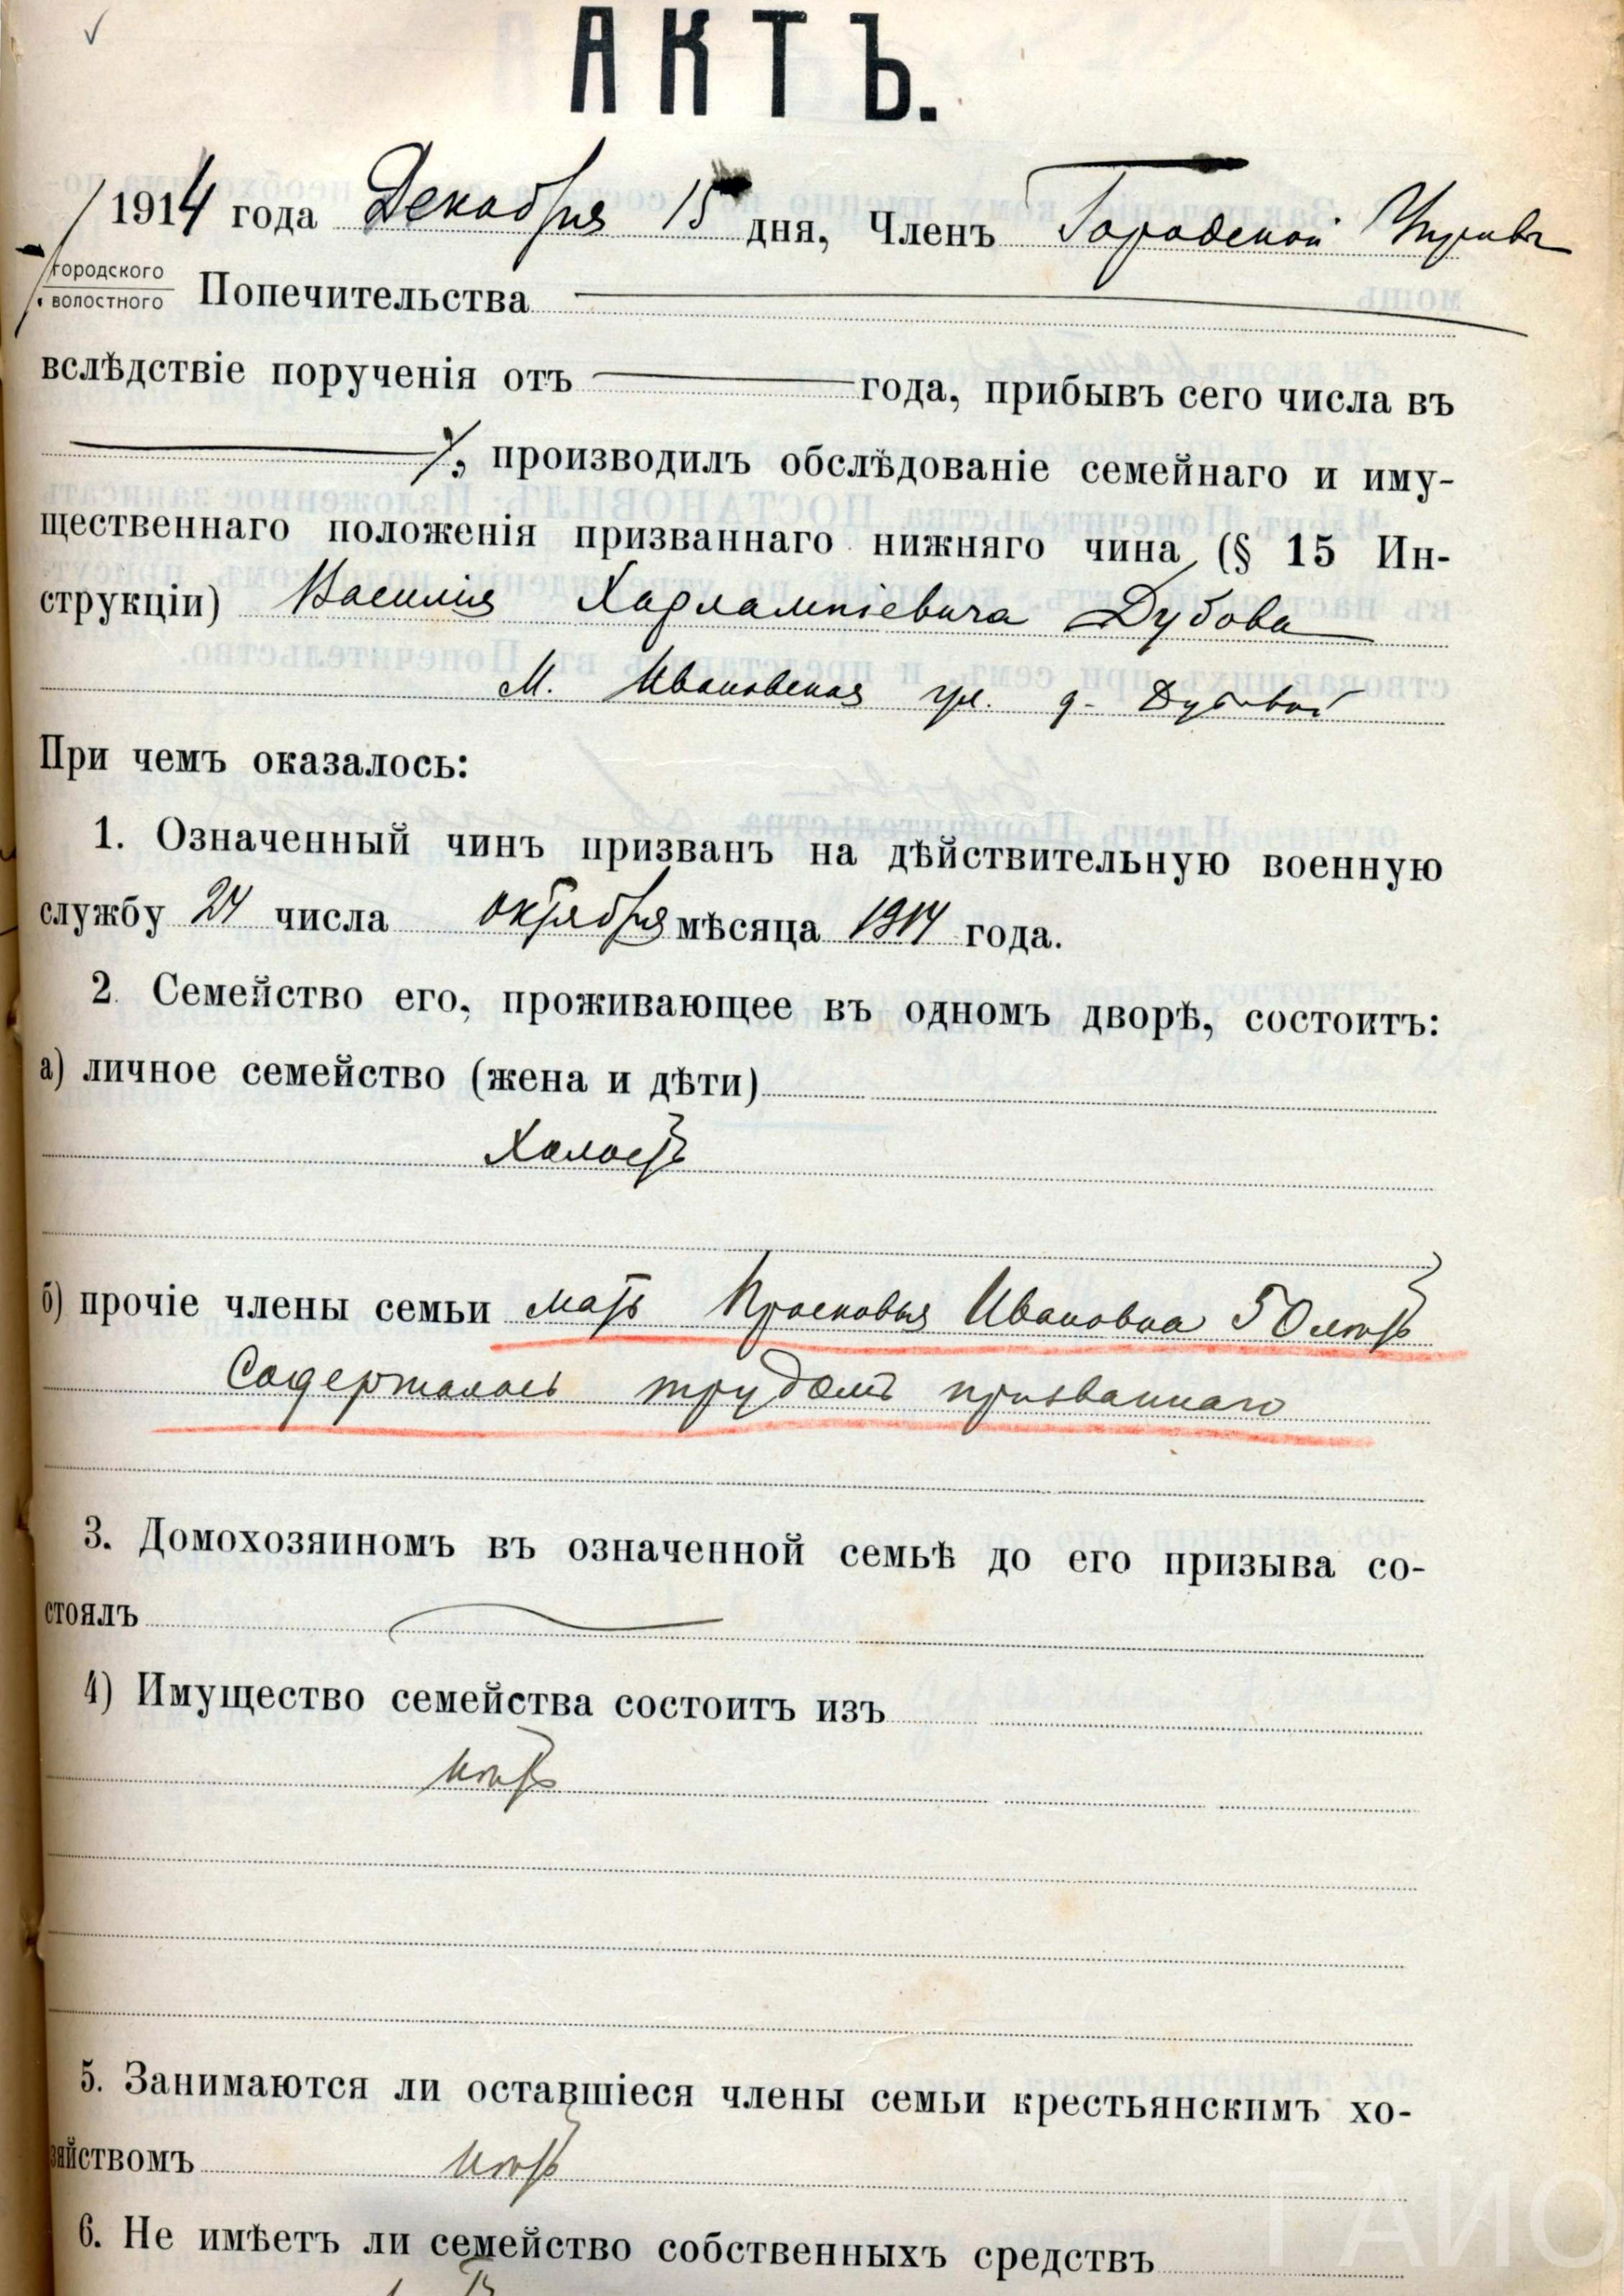 АКТЪ.
1914 года Декабря 15 дня, Членъ Городской Управы
городского
волостного Попечительства
вслѣдствіе порученія отъ года, прибывъ сего числа въ
, производилъ обслѣдованіе семейнаго и иму-
щественнаго положенія призваннаго нижняго чина (§ 15 Ин-
струкціи) Василія Харлампіевича Дубова
М. Ивановская ул. д. Дубовой
При чемъ оказалось:
1. Означенный чинъ призванъ на дѣйствительную военную
службу 24 числа октября мѣсяца 1914 года.
2. Семейство его, проживающее въ одномъ дворѣ, состоитъ:
а) личное семейство (жена и дѣти)
Холостъ
б) прочіе члены семьи мать Прасковья Ивановна 50 лѣтъ
Содержалась трудомъ призваннаго
3. Домохозяиномъ въ означенной семьѣ до его призыва со-
стоялъ
4) Имущество семейства состоитъ изъ
нѣтъ
5. Занимаются ли оставшіеся члены семьи крестьянскимъ хо-
зяйствомъ нѣтъ
6. Не имѣетъ ли семейство собственныхъ средствъ
ГАИО